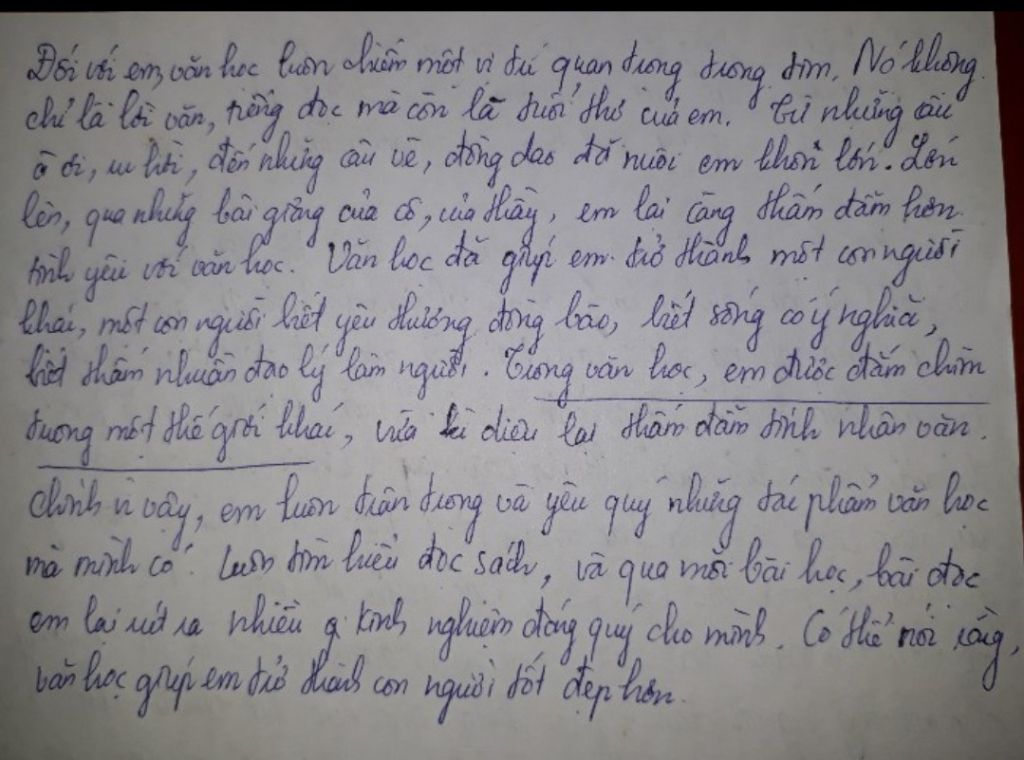 Đối với em, văn học luôn chiếm một vị trí quan trọng trong tim. Nó không
chỉ là lời văn, tiếng đọc mà còn là tuổi thơ của em. Từ những câu
à ơi, ru hời, đến những câu vè, đồng dao đã nuôi em khôn lớn. Lớn
lên, qua những bài giảng của cô, của thầy, em lại càng thấm đẫm hơn
tình yêu với văn học. Văn học đã giúp em trở thành một con người
khác, một con người biết yêu thương đồng bào, biết sống có ý nghĩa,
biết thấm nhuần đạo lý làm người. Trong văn học, em được đắm chìm
trong một thế giới khác, vừa kì diệu lại thấm đẫm tính nhân văn.
Chính vì vậy, em luôn trân trọng và yêu quý những tác phẩm văn học
mà mình có. Luôn tìm hiểu đọc sách, và qua mỗi bài học, bài đọc
em lại rút ra nhiều kinh nghiệm đáng quý cho mình. Có thể nói rằng,
văn học giúp em trở thành con người tốt đẹp hơn.